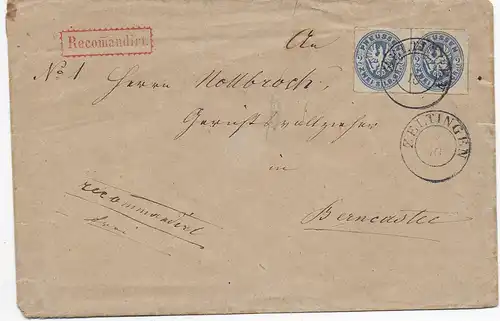 Recomandirt
An
PREUSSEN PREUSSEN
No 1 Herrn Nollbroch,
ZELTINGEN
Gerichtsvollzieher
in
recommandirt
frei
Berncastel